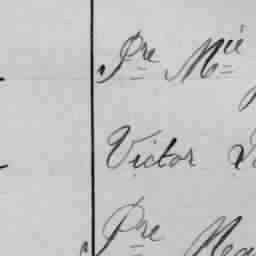 Pre Mie
Victor
Pre